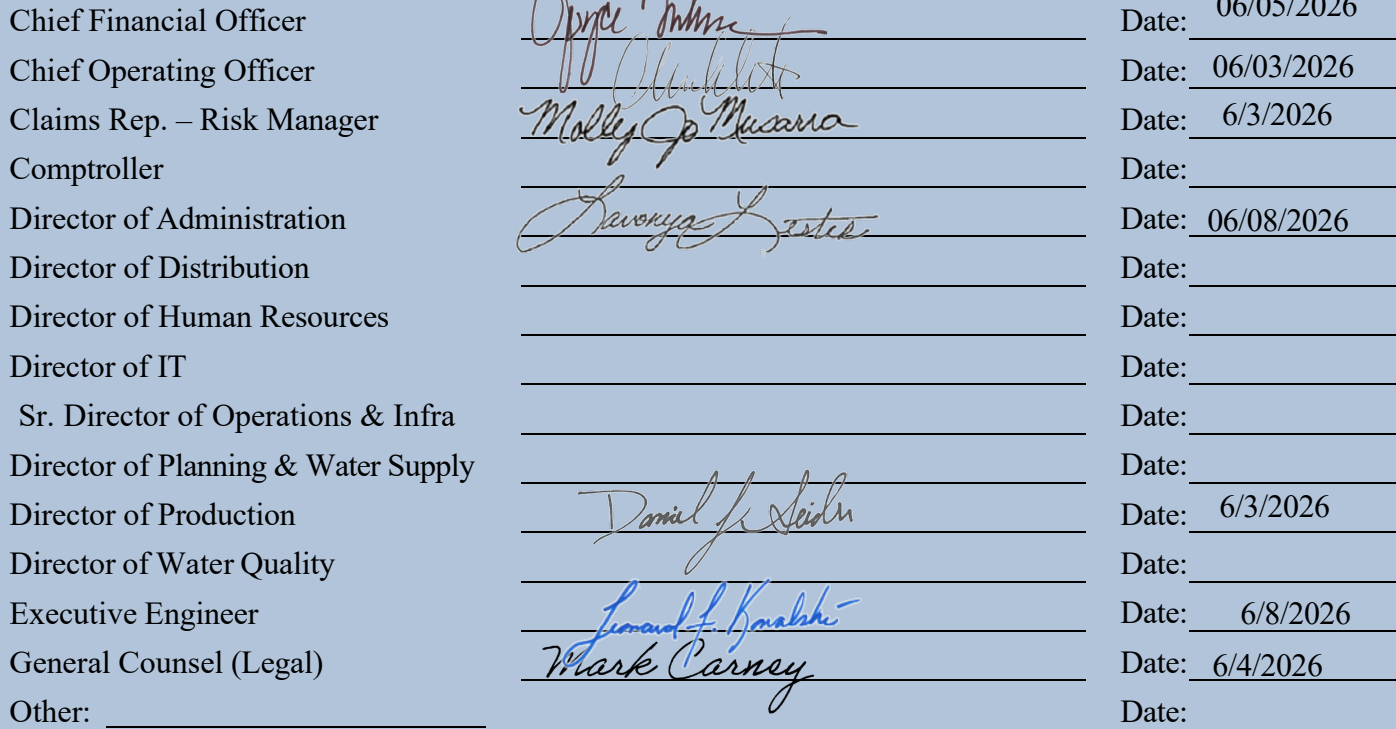 Chief Financial Officer Date: 06/05/2026
Chief Operating Officer Date: 06/03/2026
Claims Rep. – Risk Manager Molly Jo Musarra Date: 6/3/2026
Comptroller Date:
Director of Administration Lavonya Lester Date: 06/08/2026
Director of Distribution Date:
Director of Human Resources Date:
Director of IT Date:
Sr. Director of Operations & Infra Date:
Director of Planning & Water Supply Date:
Director of Production Daniel Date: 6/3/2026
Director of Water Quality Date:
Executive Engineer Leonard F. Kowalski Date: 6/8/2026
General Counsel (Legal) Mark Carney Date: 6/4/2026
Other: Date: